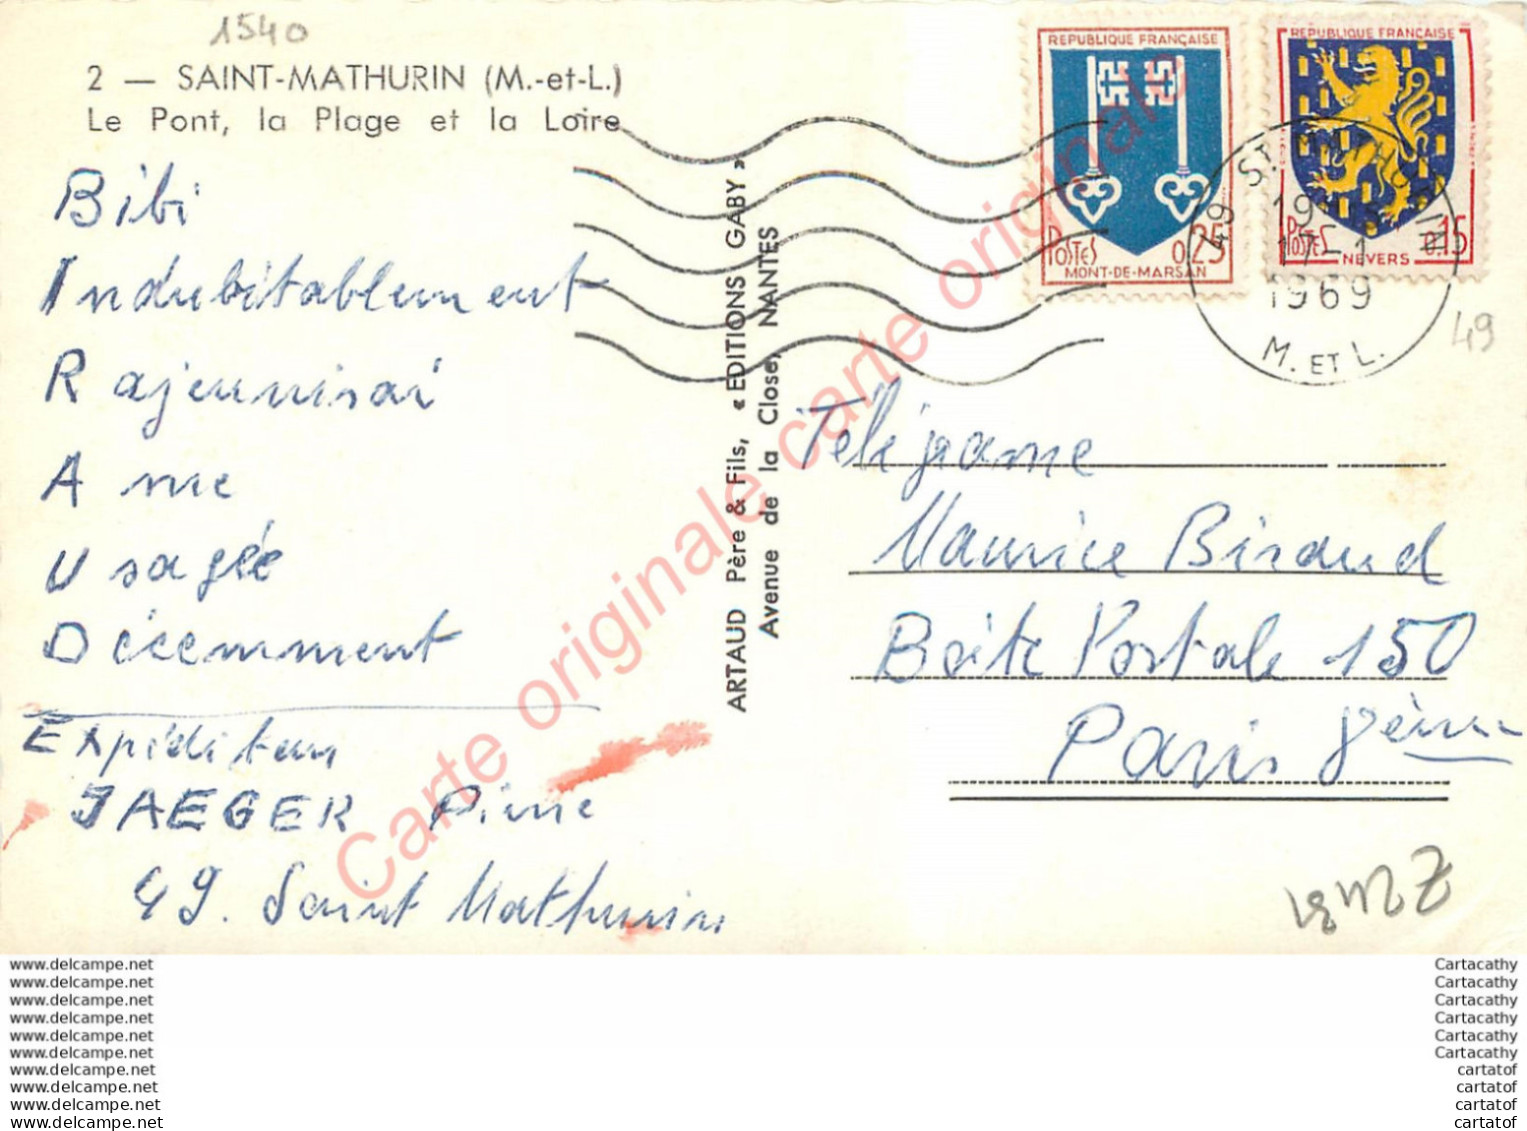 1540
2 — SAINT-MATHURIN (M.-et-L.)
Le Pont, la Plage et la Loire
Bibi
Indubitablement
Rajeunisai
Ame
Usagée
Décemment
Expéditeur
JAEGER Pierre
49. Saint Mathurin
ARTAUD Père & Fils, « EDITIONS GABY »
Avenue de la Close, NANTES
REPUBLIQUE FRANÇAISE
POSTES 0,25
MONT-DE-MARSAN
REPUBLIQUE FRANÇAISE
POSTES 0,15
NEVERS
49 ST
19
17-1
1969
M. ET L.
49
Télégrame
Maurice Biraud
Boite Postale 150
Paris 8ème
Carte originale carte originale
www.delcampe.net
www.delcampe.net
www.delcampe.net
www.delcampe.net
www.delcampe.net
www.delcampe.net
www.delcampe.net
www.delcampe.net
www.delcampe.net
www.delcampe.net
Cartacathy
Cartacathy
Cartacathy
Cartacathy
Cartacathy
Cartacathy
cartatof
cartatof
cartatof
cartatof